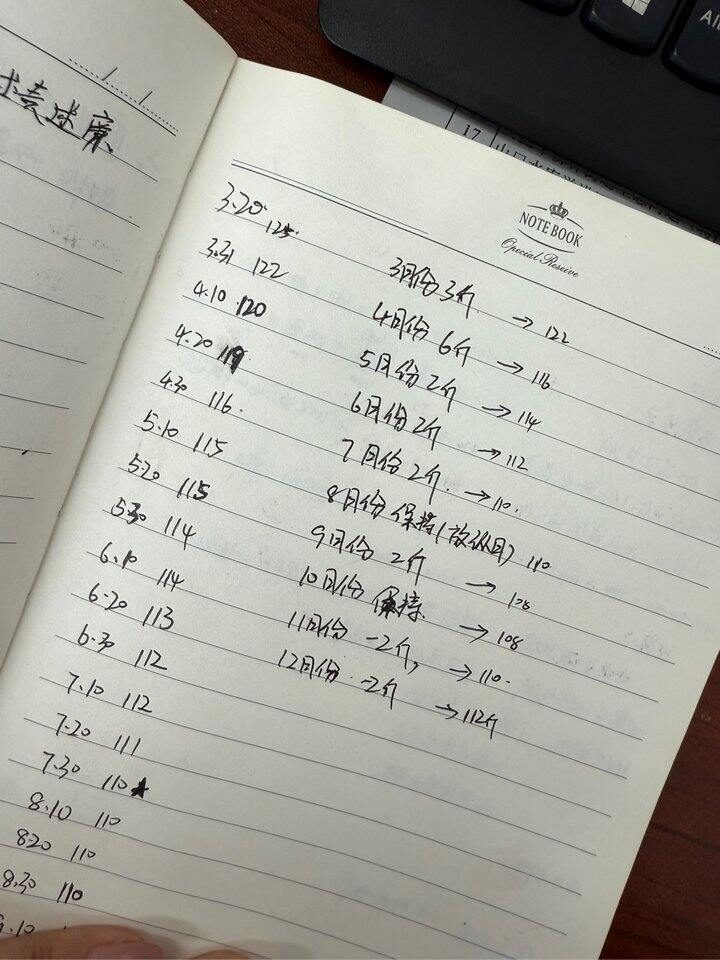 NOTE BOOK
Special Reseive
3.20 125
3.31 122
4.10 120
4.20 119
4.30 116.
5.10 115
5.20 115
5.30 114
6.10 114
6.20 113
6.30 112
7.10 112
7.20 111
7.30 110★
8.10 110
8.20 110
8.30 110
9.10
3月份 3斤 → 122
4月份 6斤 → 116
5月份 2斤 → 114
6月份 2斤 → 112
7月份 2斤. → 110.
8月份 保持(放纵月) 110
9月份 2斤 → 108
10月份 保持. → 108
11月份 -2斤, → 110.
12月份. -2斤 → 112斤
17
Alt